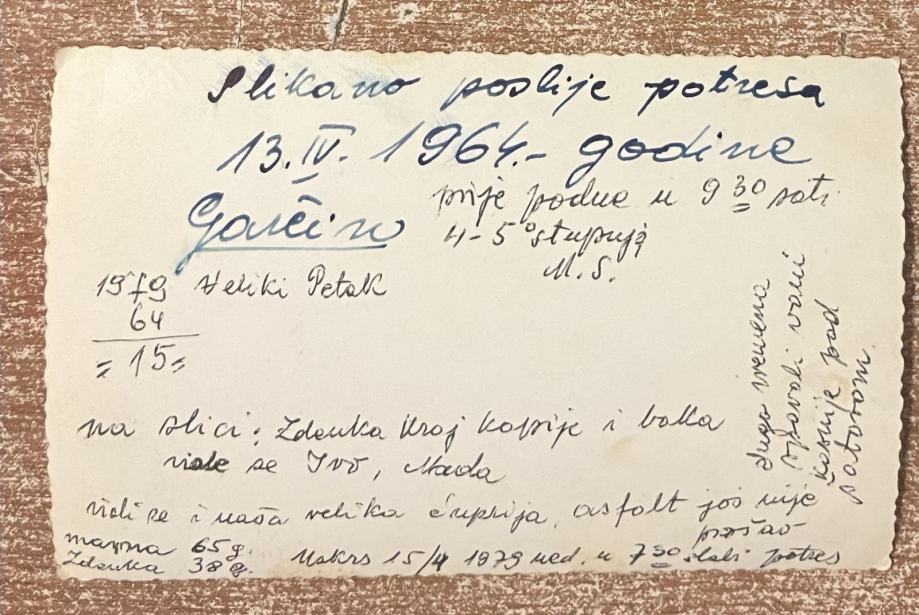 Slikano poslije potresa
13. IV. 1964.- godine
Garčin
prije podne u 9 30 sati
4-5 °stupnja
M. S.
1979 Veliki Petak
64
= 15 =
dugo vremena
spavali vani
kasnije pod
šatorom.
na slici: Zdenka kraj kapije i baka
vide se Ivo, Mada
vidi se i naša velika ćuprija, asfalt još nije
prošao
mama 65 g.
Zdenka 38 g.
Uskrs 15/4 1979 ned. u 7 30 slabi potres